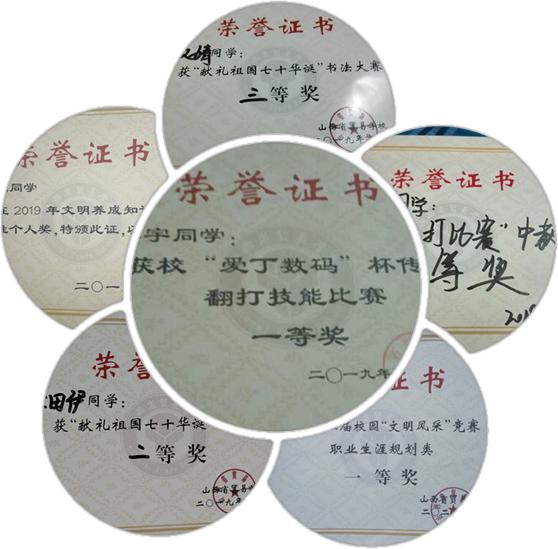 荣誉证书
婧同学：
获“献礼祖国七十华诞”书法大赛
三等奖
山西省贸易学校
二〇一九年
荣誉证书
同学
2019年文明养成知
个人奖，特颁此证，以
二〇一
荣誉证书
宇同学：
获校“爱丁数码”杯传
翻打技能比赛
一等奖
二〇一九年
荣誉证书
同学：
打比赛”中获
等奖
2019
荣誉证书
田伊同学：
获“献礼祖国七十华诞
二等奖
山西省贸易学
二〇一九年
证书
届校园“文明风采”竞赛
职业生涯规划类
一等奖
山西省贸
二〇二